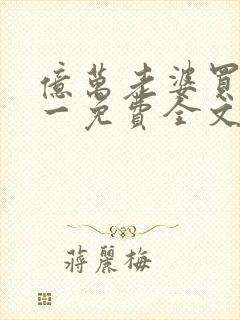 億萬老婆買
一免費全文
蔣麗梅